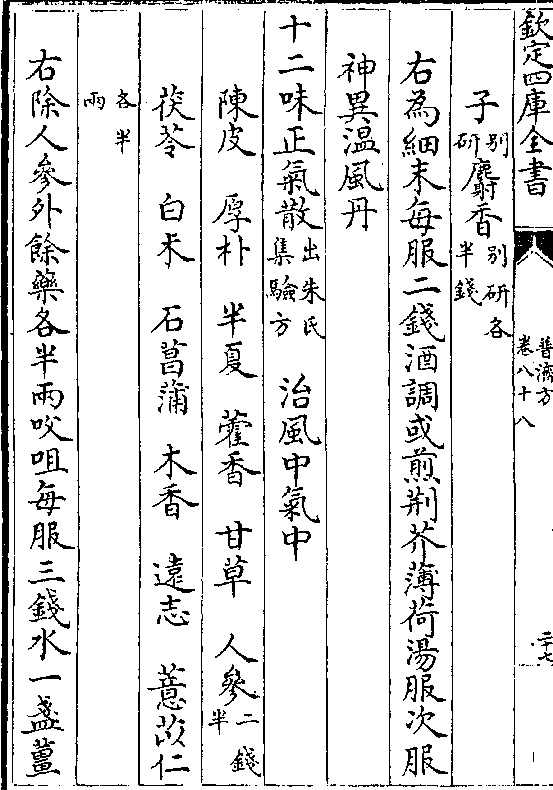 欽定四庫全書
普濟方
卷八十八
二十七
子別研麝香別研各半錢
右為細末每服二錢酒調或煎荆芥薄荷湯服次服
神異温風丹
十二味正氣散出朱氏集驗方 治風中氣中
陳皮 厚朴 半夏 藿香 甘草 人參二錢半
茯苓 白术 石菖蒲 木香 遠志 薏苡仁
各半兩
右除人參外餘藥各半兩㕮咀每服三錢水一盞薑